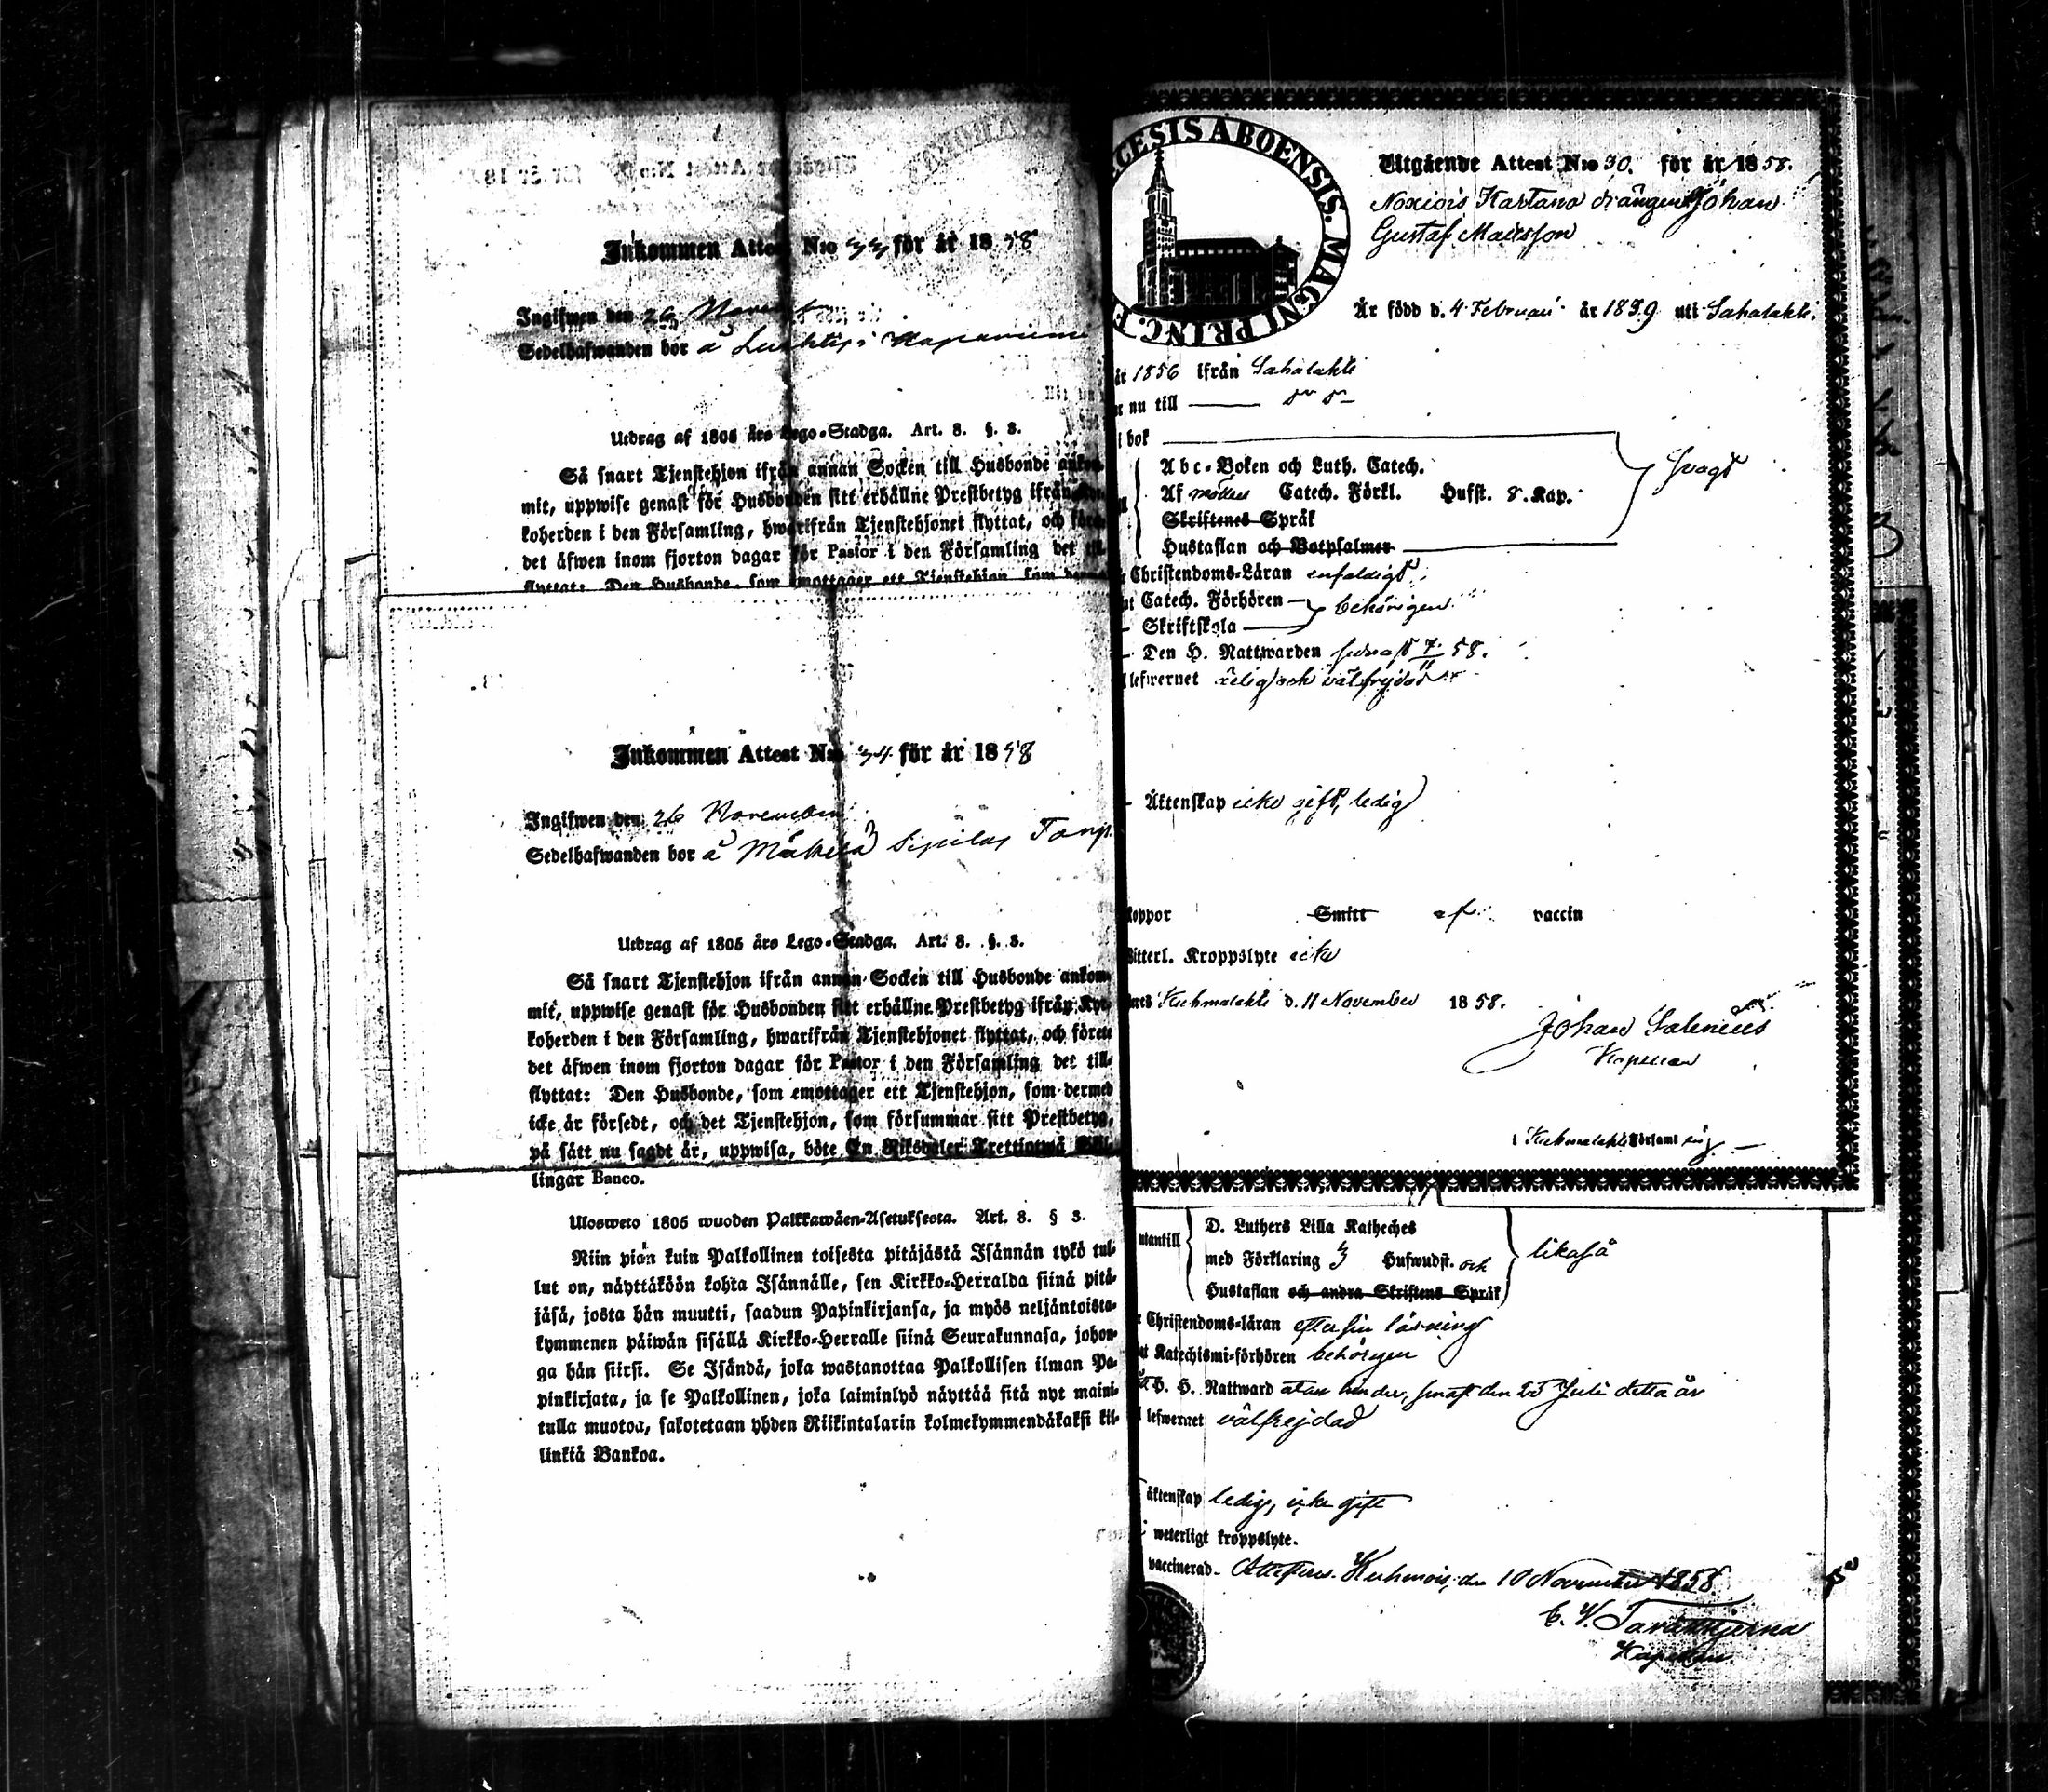 Inkommen Attest N:o 33 för år 1858
Ingifwen den 26 November
Sedelhafwanden bor å
Utdrag af 1805 års Lego-Stadga. Art. 8. §. 3.
Så snart Tjenstehjon ifrån annan Socken till Husbonde ankom-
mit, uppwise genast för Husbonden sitt erhållne Prestbetyg ifrån Kyr-
koherden i den Församling, hwarifrån Tjenstehjonet flyttat, och förete
det äfwen inom fjorton dagar för Pastor i den Församling det till-
flyttat: Den Husbonde, som emottager ett Tjenstehjon, som dermed
Inkommen Attest N:o 34 för år 1858
Ingifwen den 26 November
Sedelhafwanden bor å Mäkelä
Utdrag af 1805 års Lego-Stadga. Art. 8. §. 3.
Så snart Tjenstehjon ifrån annan Socken till Husbonde ankom-
mit, uppwise genast för Husbonden sitt erhållne Prestbetyg ifrån Kyr-
koherden i den Församling, hwarifrån Tjenstehjonet flyttat, och förete
det äfwen inom fjorton dagar för Pastor i den Församling det till-
flyttat: Den Husbonde, som emottager ett Tjenstehjon, som dermed
icke är försedt, och det Tjenstehjon, som försummar sitt Prestbetyg,
på sätt nu sagdt är, uppwisa, böte En Riksdaler Trettiotwå Skil-
lingar Banco.
Ulosweto 1805 wuoden Palkkawäen-Asetuksesta. Art. 8. § 3.
Niin piän kuin Palkollinen toisesta pitäjästä Isännän tykö tul-
lut on, näyttäköön kohta Isännälle, sen Kirkko-Herralda siinä pitä-
jäsä, josta hän muutti, saadun Papinkirjansa, ja myös neljäntoista-
kymmenen päiwän sisällä Kirkko-Herralle siinä Seurakunnasa, johon-
ga hän siirst. Se Isändä, joka wastanottaa Palkollisen ilman Pa-
pinkirjata, ja se Palkollinen, joka laiminlyö näyttää sitä nyt maini-
tulla muotoa, sakotetaan yhden Riikintalarin kolmekymmendäkaksi kil-
linkiä Bankoa.
CESIS ABOENSIS. MAGNI PRINC. F
Utgående Attest N:o 30. för år 1858.
Noxiois Kartano drängen Johan
Gustaf Mattsson
Är född d. 4 Februari år 1839 uti Sahalahti.
år 1856 ifrån Sahalahti
nu till
i bok
Abc-Boken och Luth. Catech.
Af Catech. Förkl. Hufst. 8. Kap.
Skriftenes Språk
Hustaflan och Botpsalmer
svagt
Christendoms-Läran enfaldigt
Catech. Förhören
Skriftskola
behörigen
Den H. Nattwarden senast 7/11 58.
lefwernet och välfrejdad
Äktenskap icke gift, ledig
koppor Smitt af vaccin
Witterl. Kroppslyte icke
Kuhmalahti d. 11 November 1858.
Johan Salenius
Kapellan
i Kuhmalahti Församling
utantill
D. Luthers Lilla Katheches
med Förklaring 3 Hufwudst. och
Hustaflan och andra Skriftens Språk
likaså
Christendoms-läran efter sin läsning
Katechismi-förhören behörigen
H. H. Nattward utan hinder, senast den 25 Juli detta år
lefwernet välfrejdad
äktenskap ledig, icke gift
weterligt kroppslyte.
vaccinerad. Attesteras. Kuhmois, den 10 November 1858.
Kapellan.